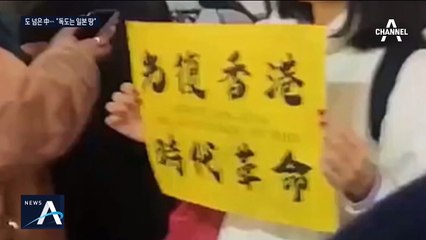 도 넘은 中… "독도는 일본 땅"
CHANNEL
光復香港
時代革命
NEWS A